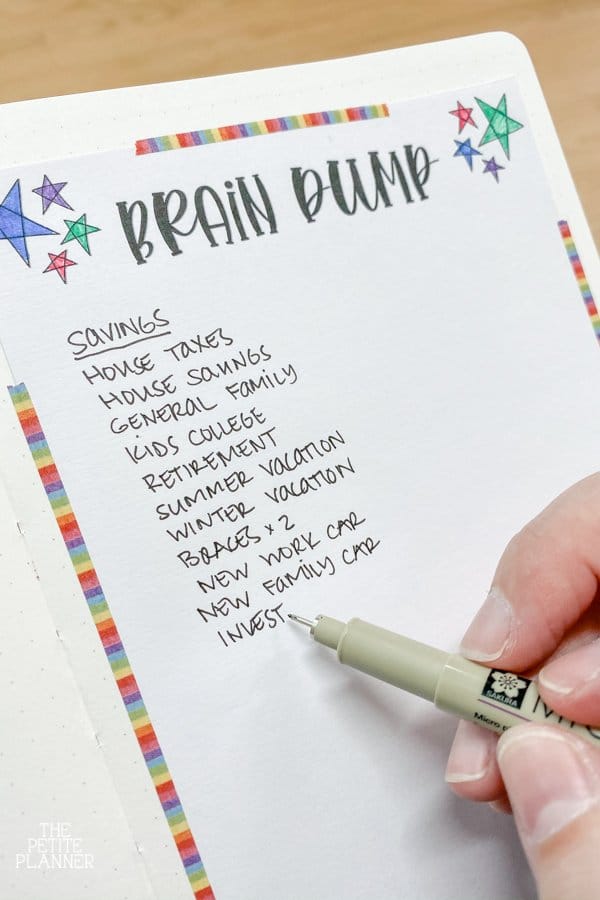 BRAIN DUMP
SAVINGS
HOUSE TAXES
HOUSE SAVINGS
GENERAL FAMILY
KIDS COLLEGE
RETIREMENT
SUMMER VACATION
WINTER VACATION
BRACES x 2
NEW WORK CAR
NEW FAMILY CAR
INVEST
SAKURA
THE
PETITE
PLANNER